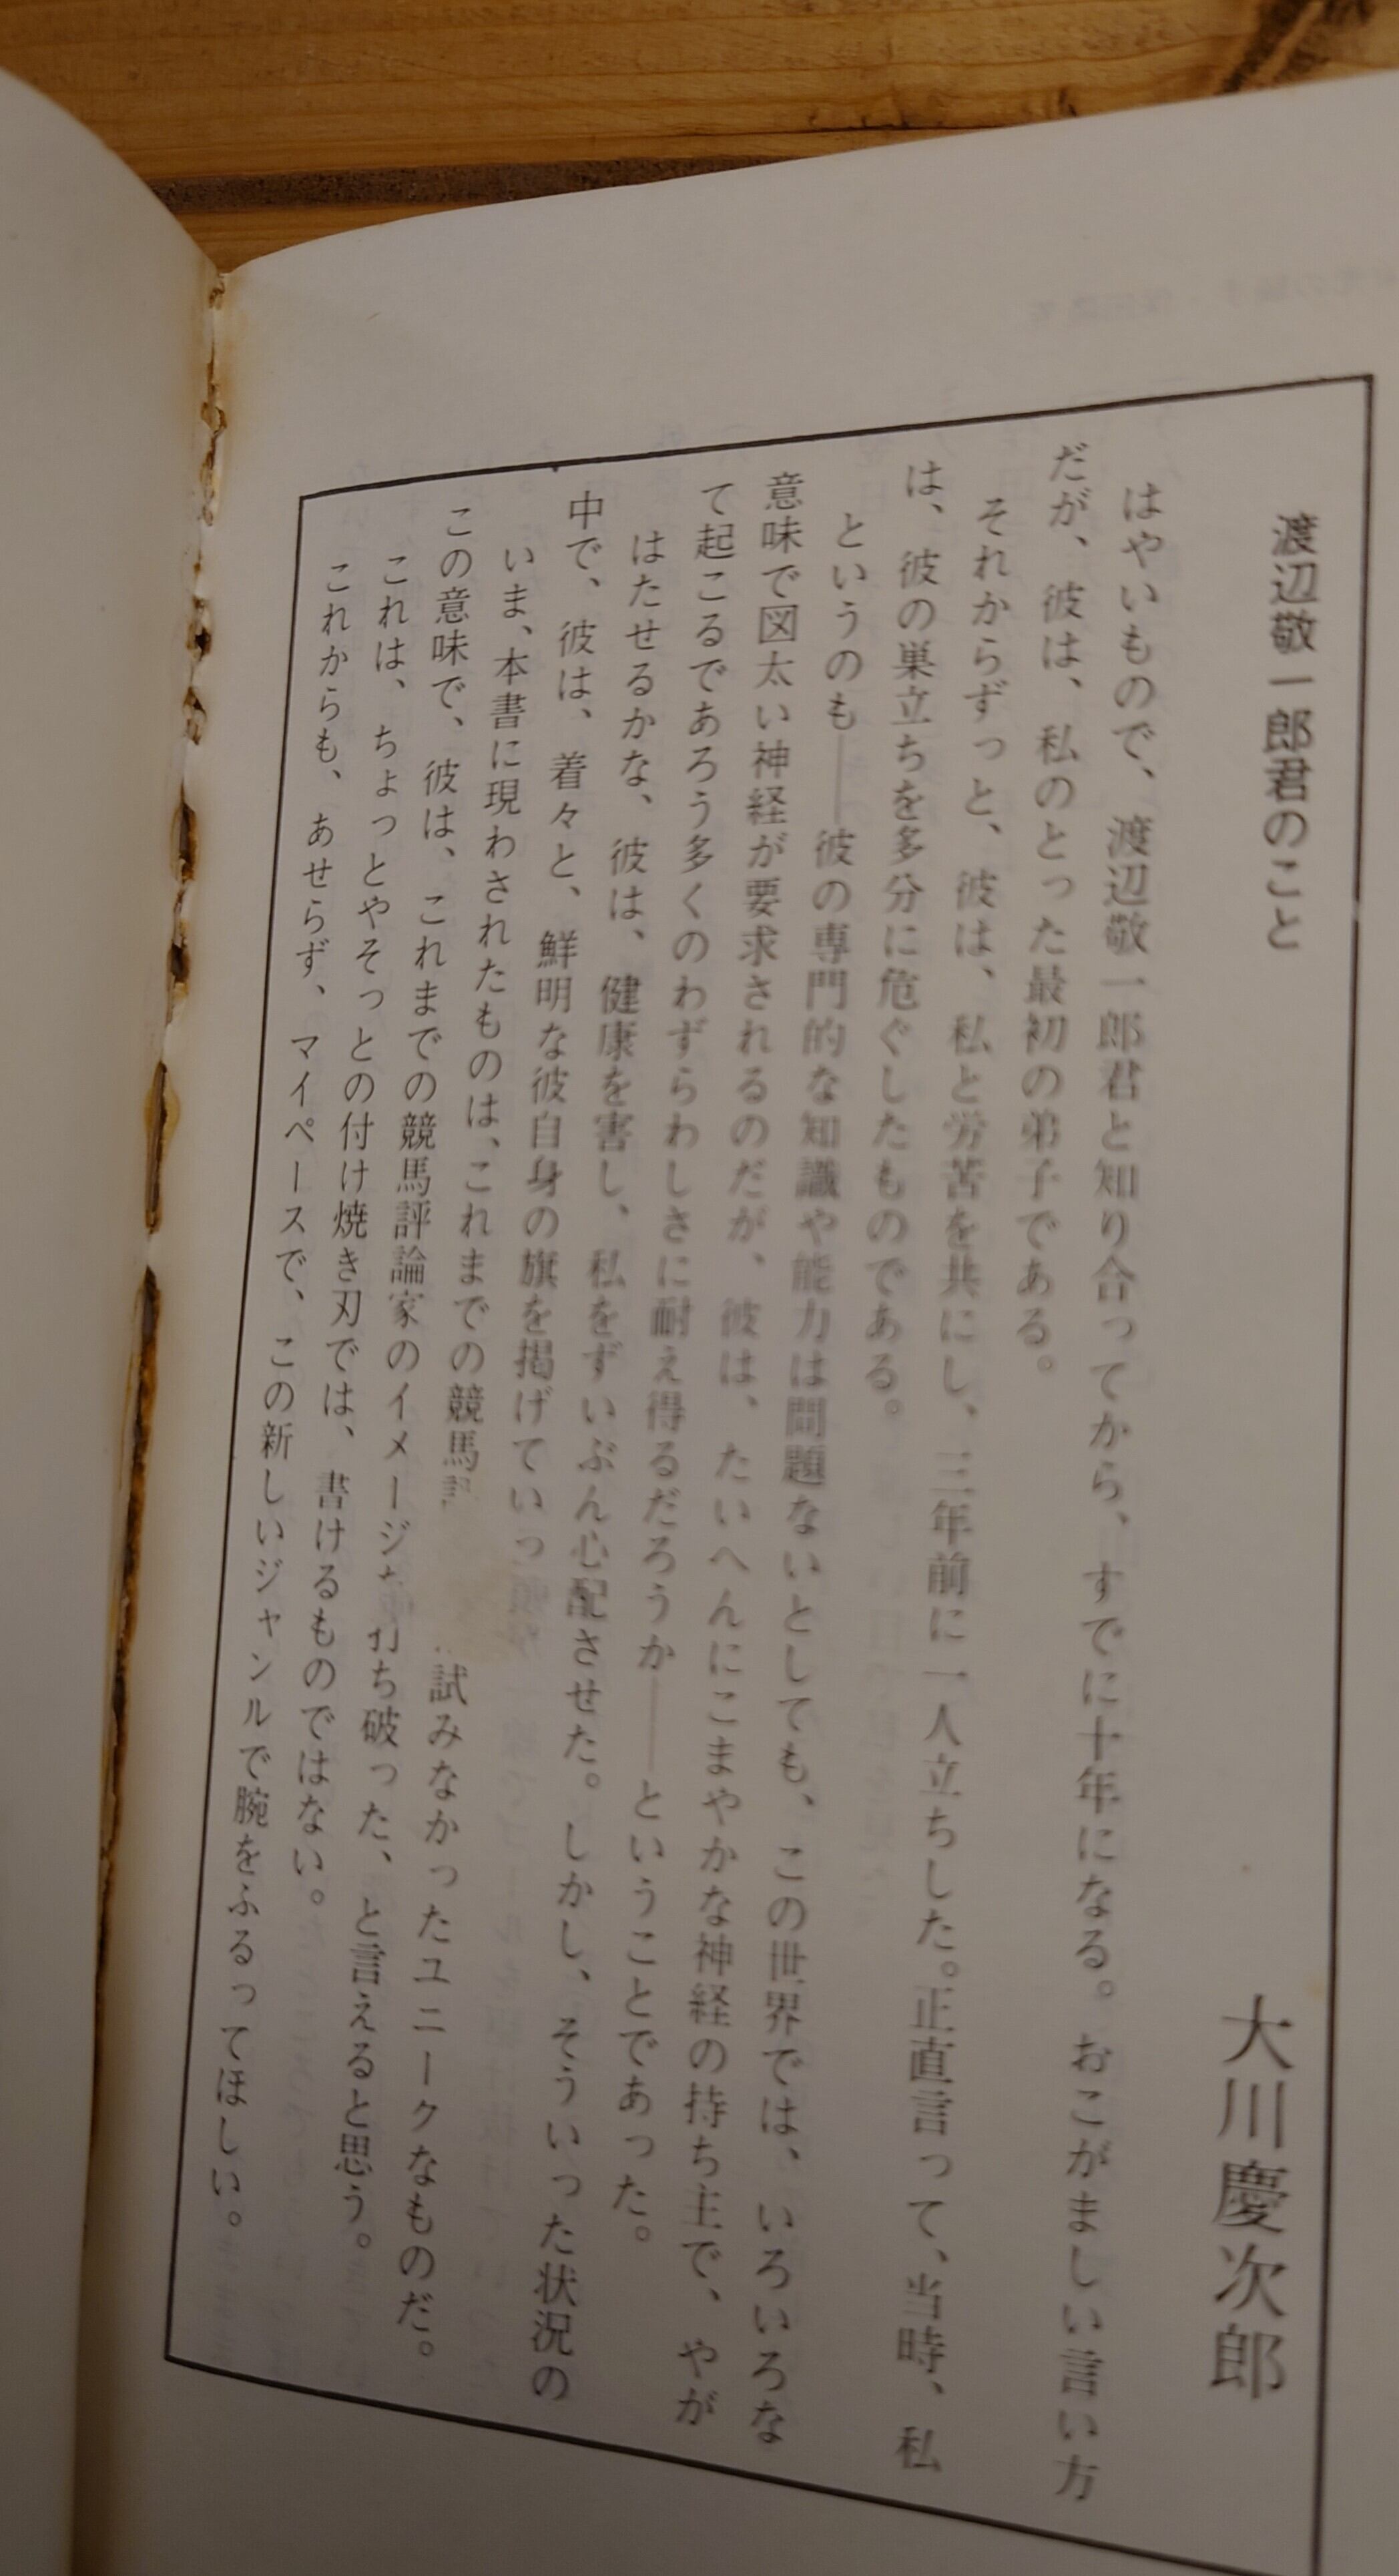 渡辺敬一郎君のこと
大川慶次郎
はやいもので、渡辺敬一郎君と知り合ってから、すでに十年になる。おこがましい言い方
だが、彼は、私のとった最初の弟子である。
それからずっと、彼は、私と労苦を共にし、三年前に一人立ちした。正直言って、当時、私
は、彼の巣立ちを多分に危ぐしたものである。
というのも――彼の専門的な知識や能力は問題ないとしても、この世界では、いろいろな
意味で図太い神経が要求されるのだが、彼は、たいへんにこまやかな神経の持ち主で、やが
て起こるであろう多くのわずらわしさに耐え得るだろうか――ということであった。
はたせるかな、彼は、健康を害し、私をずいぶん心配させた。しかし、そういった状況の
中で、彼は、着々と、鮮明な彼自身の旗を掲げていっ
いま、本書に現わされたものは、これまでの競馬 試みなかったユニークなものだ。
この意味で、彼は、これまでの競馬評論家のイメージ 打ち破った、と言えると思う。
これは、ちょっとやそっとの付け焼き刃では、書けるものではない。
これからも、あせらず、マイペースで、この新しいジャンルで腕をふるってほしい。